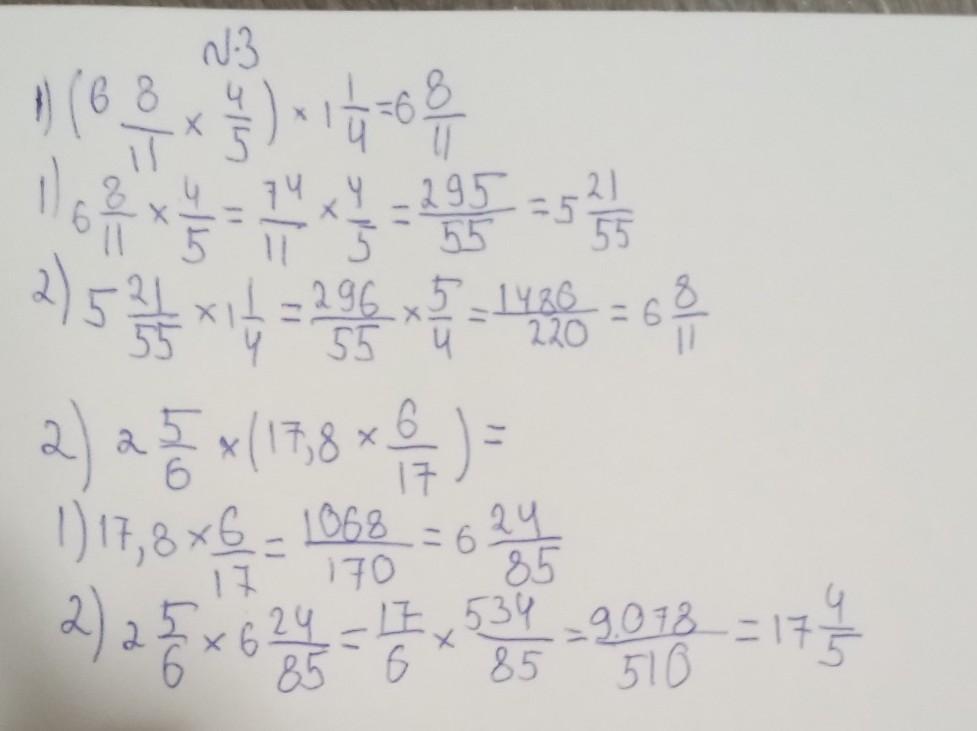 №3
1) (6 8/11 × 4/5) × 1 1/4 = 6 8/11
1) 6 8/11 × 4/5 = 74/11 × 4/5 = 295/55 = 5 21/55
2) 5 21/55 × 1 1/4 = 296/55 × 5/4 = 1486/220 = 6 8/11
2) 2 5/6 × (17,8 × 6/17) =
1) 17,8 × 6/17 = 1068/170 = 6 24/85
2) 2 5/6 × 6 24/85 = 17/6 × 534/85 = 9.078/510 = 17 4/5